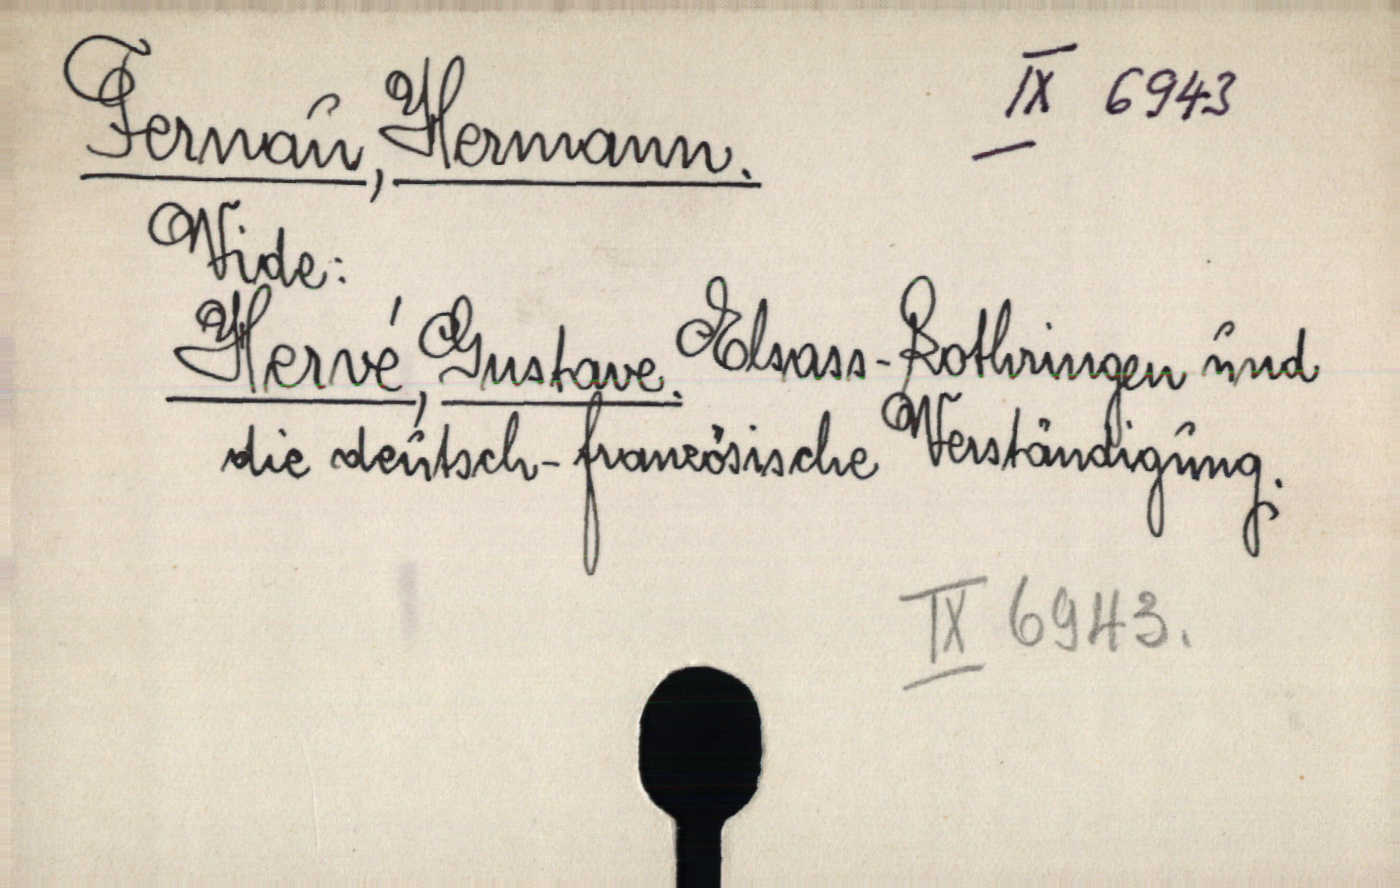 Fernau, Hermann.
IX 6943
Vide:
Hervé, Gustave. Elsass-Lothringen und
die deutsch-französische Verständigung.
IX 6943.